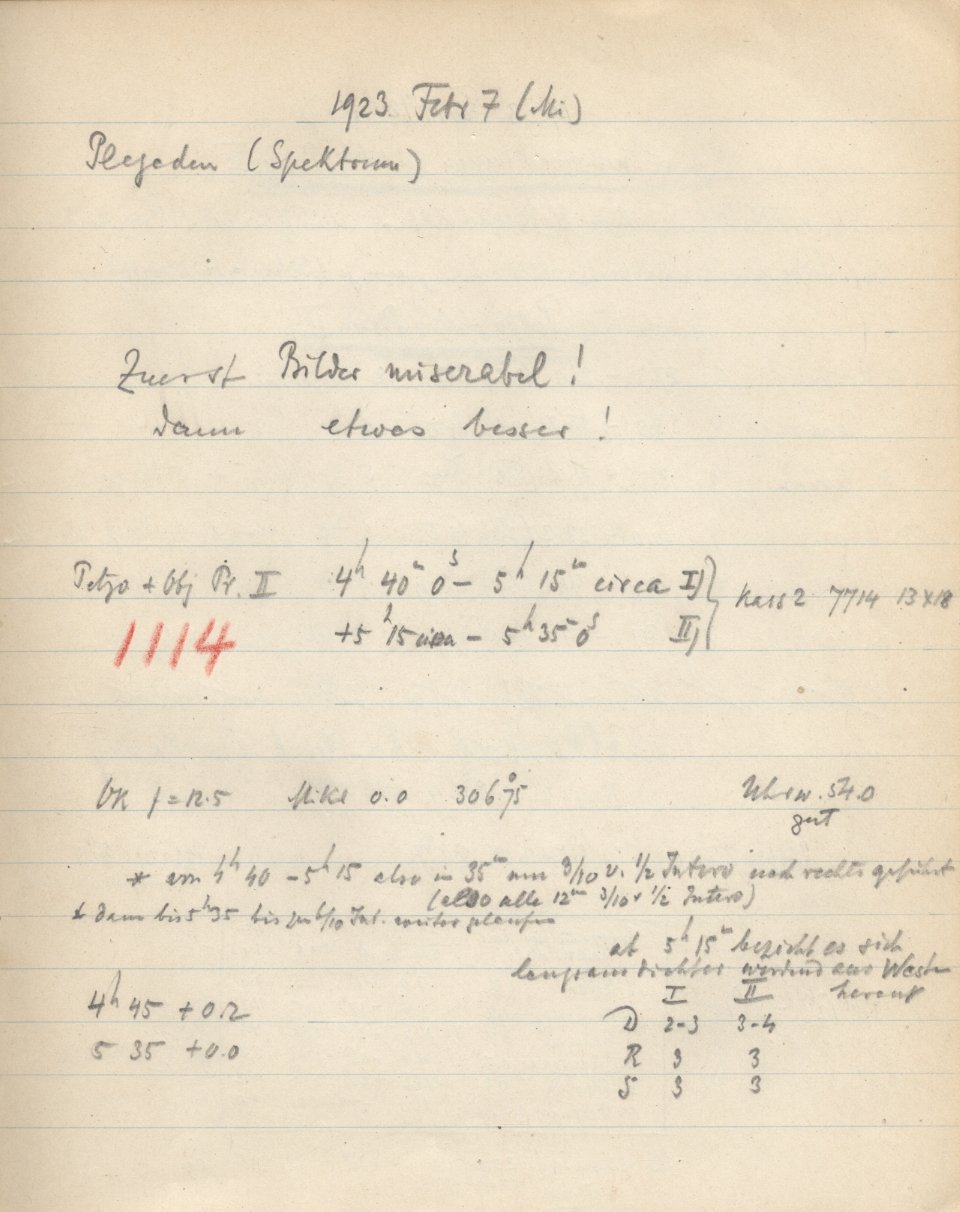 1923 Febr 7 (Mi)
Plejaden (Spektrum)
Zuerst Bilder miserabel!
dann etwas besser!
Petzo + Obj Pr. II 4h 40m 0s – 5h 15m circa I) Kass 2 7714 13×18
1114 +5h 15 circa – 5h 35m 0s II)
OK f = 12.5 Mikr 0.0 306°75 Uhrw. 54.0
gut
* von 4h 40 – 5h 15 also in 35m um 3/10 v. 1/2 Interv nach rechts geführt
(also alle 12m 3/10 v 1/2 Interv)
* dann bis 5h 35 bis zu 6/10 Int. weiter gelaufen
ab 5h 15m bezieht es sich
langsam dichter werdend aus Westen
herauf
4h 45 +0.2
5 35 +0.0
I II
D 2-3 3-4
R 3 3
S 3 3